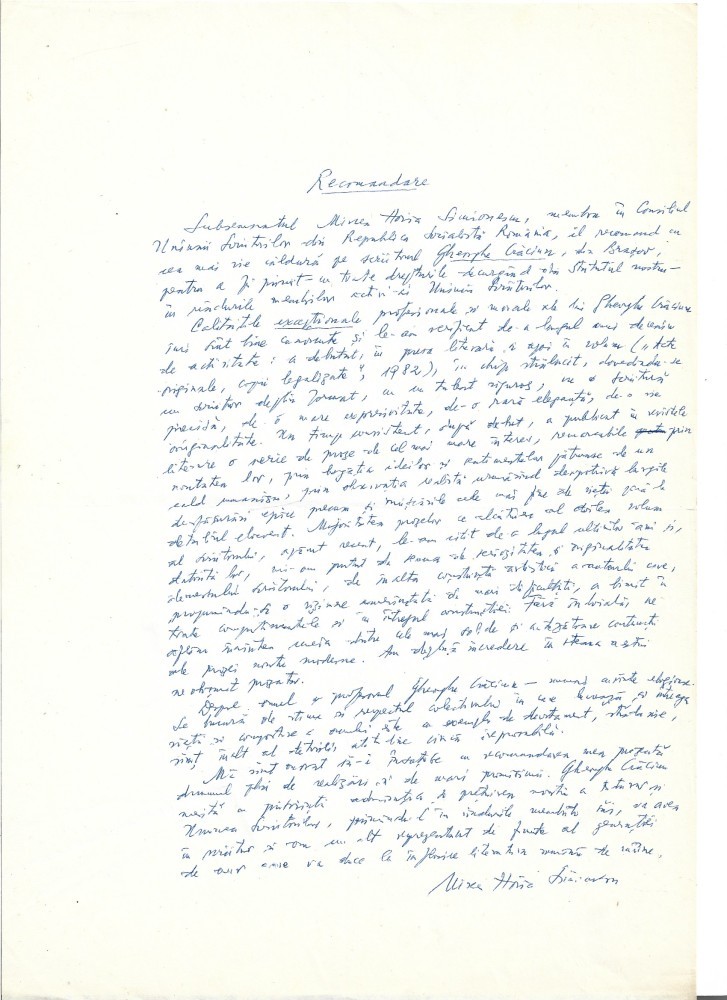 Recomandare
Subsemnatul Mircea Horia Simionescu, membru în Consiliul
Uniunii Scriitorilor din Republica Socialistă România, îl recomand cu
cea mai vie căldură pe scriitorul Gheorghe Crăciun, din Brașov,
pentru a fi primit - cu toate drepturile decurgând din Statutul nostru -
în rândurile membrilor activi ai Uniunii Scriitorilor.
Calitățile excepționale profesionale și morale ale lui Gheorghe Crăciun
îmi sînt bine cunoscute și le-am verificat de-a lungul unui deceniu
de activitate: a debutat, în presa literară și apoi în volum ("Acte
originale, copii legalizate", 1982), în chip strălucit, dovedindu-se
un scriitor deplin format, cu un talent viguros, cu o scriitură
precisă, de o mare expresivitate, de-o rară eleganță, de-o vie
originalitate. În timp consistent, după debut, a publicat în revistele
literare o serie de proze de cel mai mare interes, remarcabile prin
noutatea lor, prin bogăția ideilor și sentimentelor pătrunse de un
cald umanism, prin observația realistă urmărind deopotrivă largile
desfășurări epice precum și mișcările cele mai fine ale vieții până la
detaliul elocvent. Majoritatea prozelor ce alcătuiesc al doilea volum
al scriitorului, apărut recent, le-am citit de-a lungul ultimilor ani și,
datorită lor, mi-am putut da seama de seriozitatea și originalitatea
demersului scriitorului, de înalta conștiință artistică a autorului care,
propunându-și o viziune de mari dificultăți, a biruit în
toate compartimentele și în întregul construcției. Fără îndoială, ne
aflăm înaintea uneia dintre cele mai solide și autoritare
ale prozei noastre moderne. Am deplină încredere în steaua acestui
prozator.
Despre omul și profesorul Gheorghe Crăciun - numai cuvinte elogioase.
Se bucură de stima și respectul colectivului în care lucrează, și întreaga
viață și comportare a omului este un exemplu de devotament, strădanie,
simț înalt al datoriei, atitudine civică ireproșabilă.
Mă simt onorat să-i însoțesc cu recomandarea mea prezentă
drumul plin de realizări și de mari promisiuni. Gheorghe Crăciun
merită cu admirația și prețuirea noastră a tuturor și
Uniunea Scriitorilor, primindu-l în rândurile membrilor săi, va avea
în scriitor și om un alt reprezentant de frunte al generației
de aur care va duce la înflorire literatura română de mâine.
Mircea Horia Simionescu